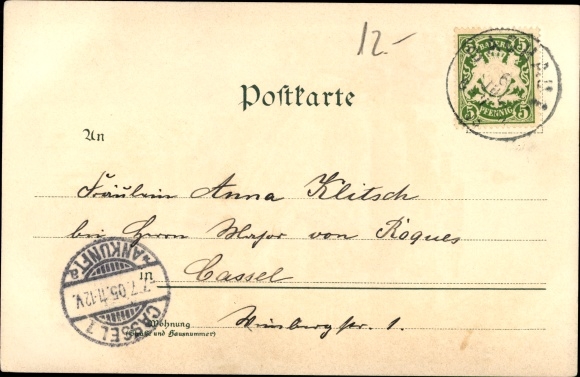 12.-
5 BAYERN 5
5 PFENNIG 5
Postkarte
An
Fräulein Anna Klitsch
bei Herrn Major von Roques
in Cassel
Weinbergstr. 1.
Wohnung
(Straße und Hausnummer)
ANKUNFT
7.7.05.11-12V.
CASSEL 1